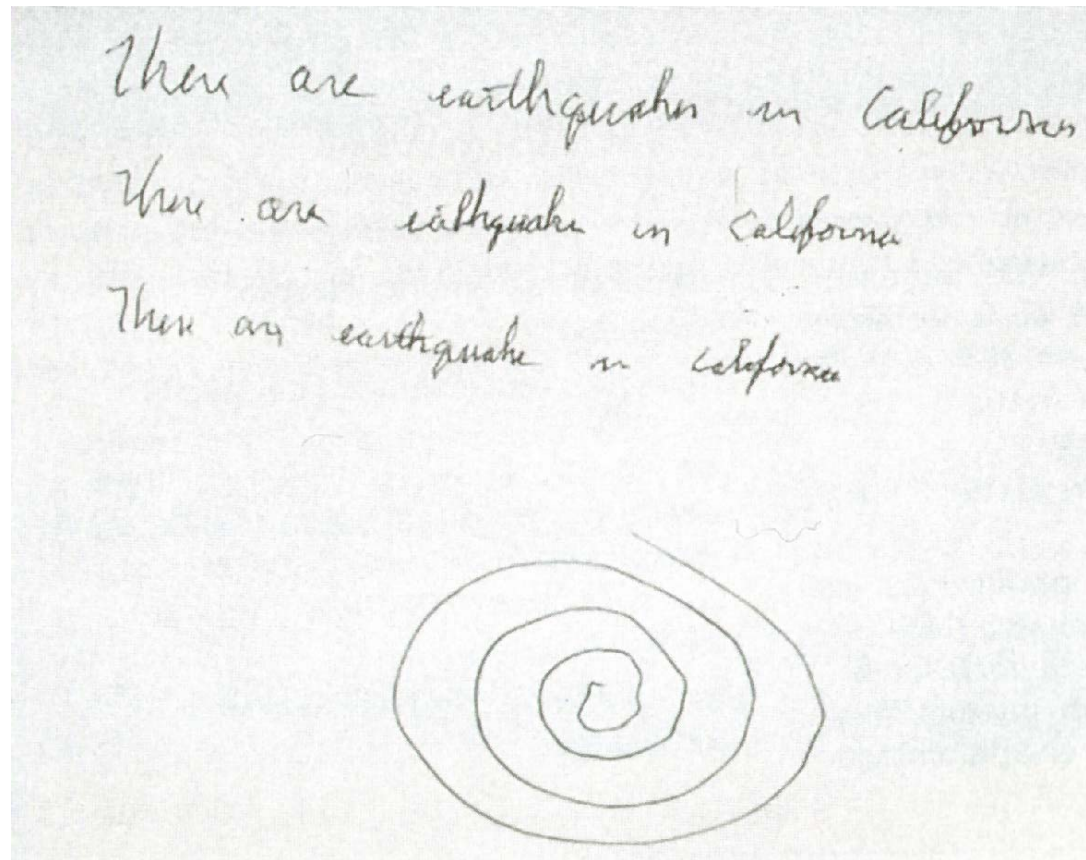 There are earthquakes in California
There are eathquake in California
There are earthquake in California